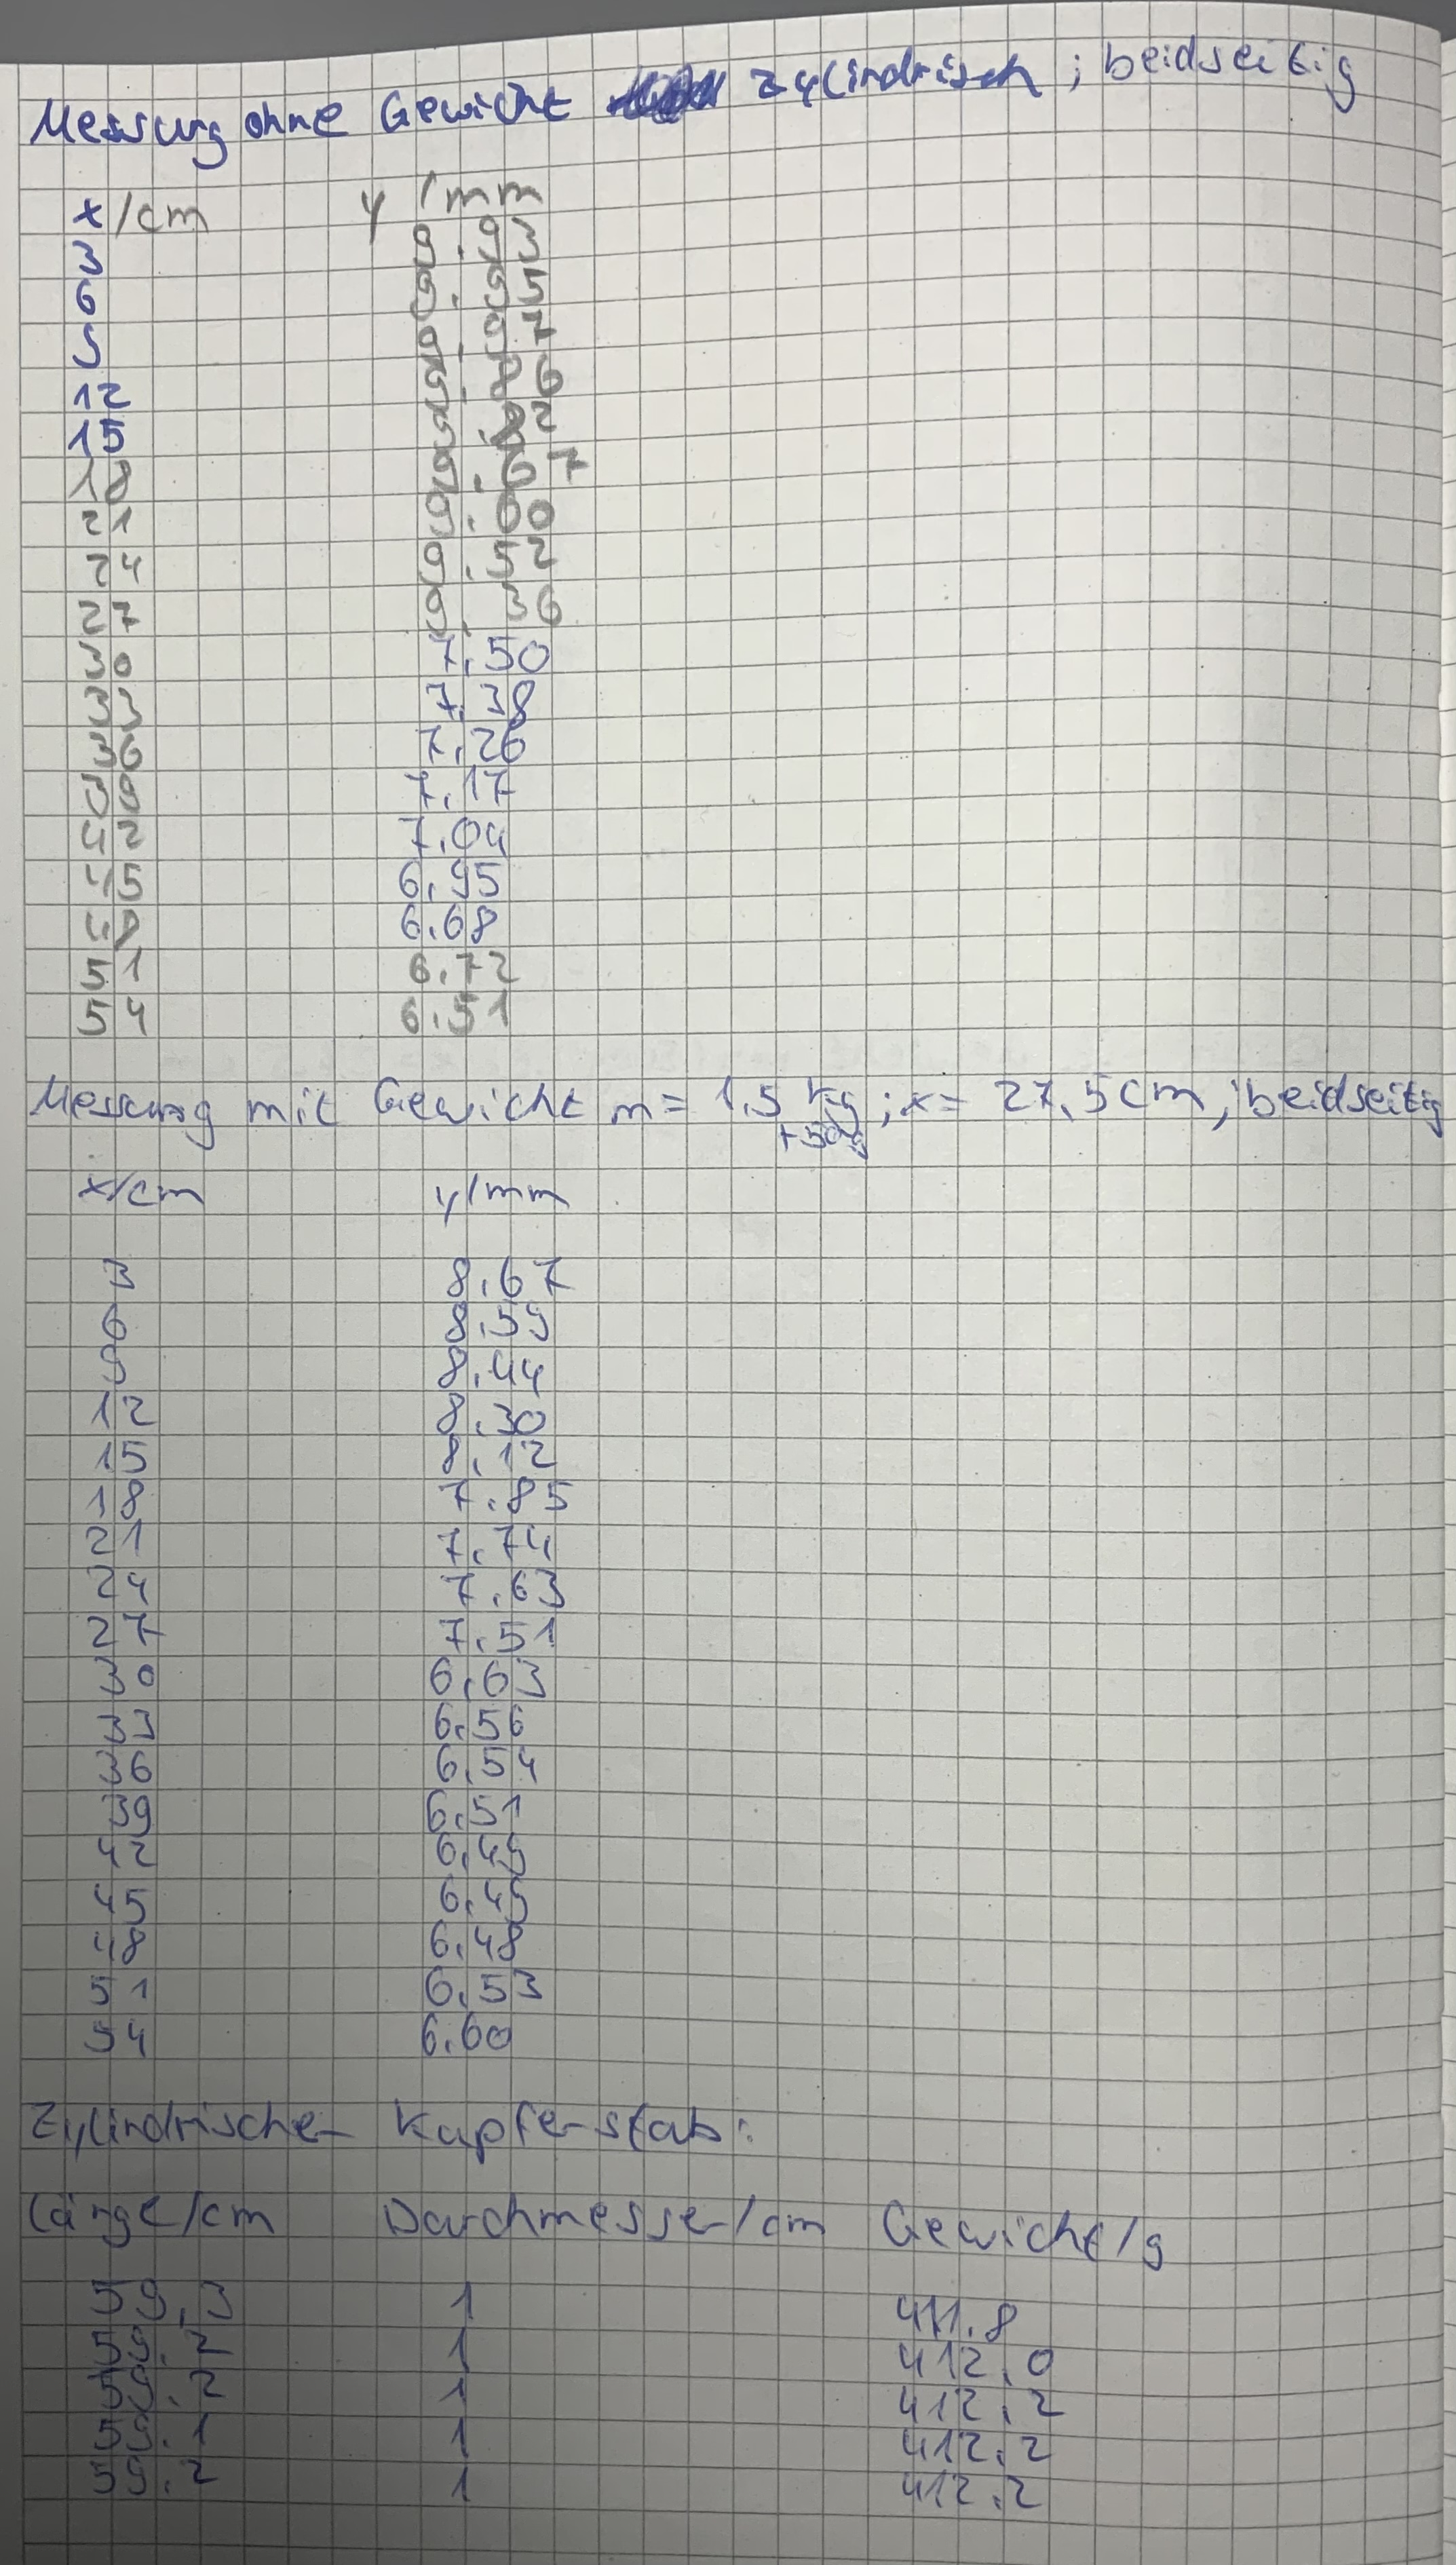 Messung ohne Gewicht zylindrisch ; beidseitig
x/cm y/mm
3 9.93
6 9.95
9 9.97
12 9.86
15 9.82
18 9.67
21 9.60
24 9.52
27 9.36
30 7.50
33 7.38
36 7.26
39 7.17
42 7.04
45 6.95
48 6.68
51 6.72
54 6.51
Messung mit Gewicht m = 1.5 kg ; x = 27.5cm, beidseitig
+50g
x/cm y/mm
3 8.67
6 8.55
9 8.44
12 8.30
15 8.12
18 7.85
21 7.74
24 7.63
27 7.51
30 6.63
33 6.56
36 6.54
39 6.51
42 6.45
45 6.45
48 6.48
51 6.53
54 6.60
Zylindrischer Kupferstab:
Länge/cm Durchmesser/cm Gewicht/g
59.3 1 411.8
59.2 1 412.0
59.2 1 412.2
59.1 1 412.2
59.2 1 412.2